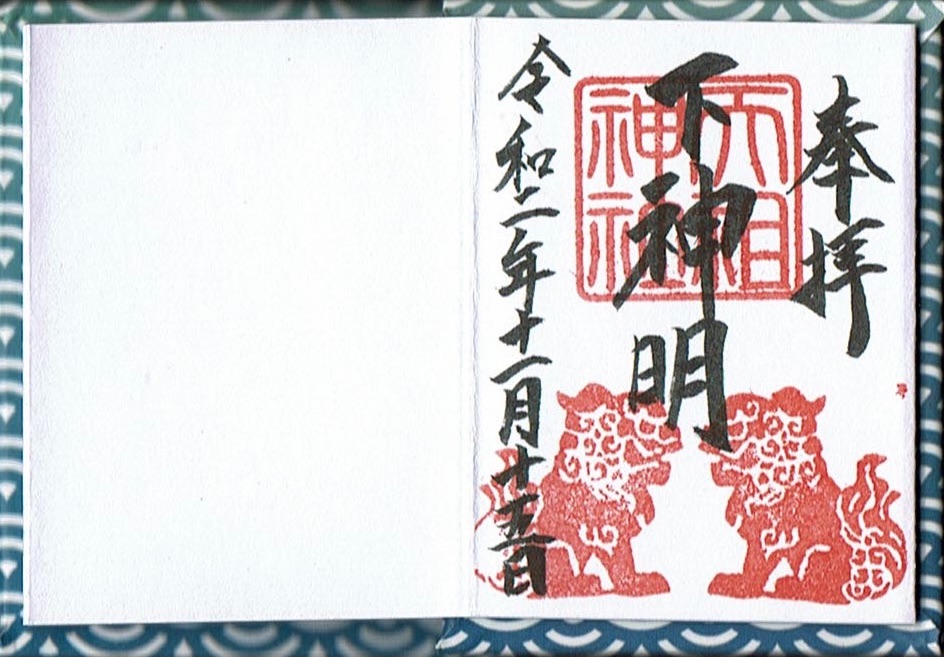 奉拝
下神明
天祖
神社
令和二年十一月十五日